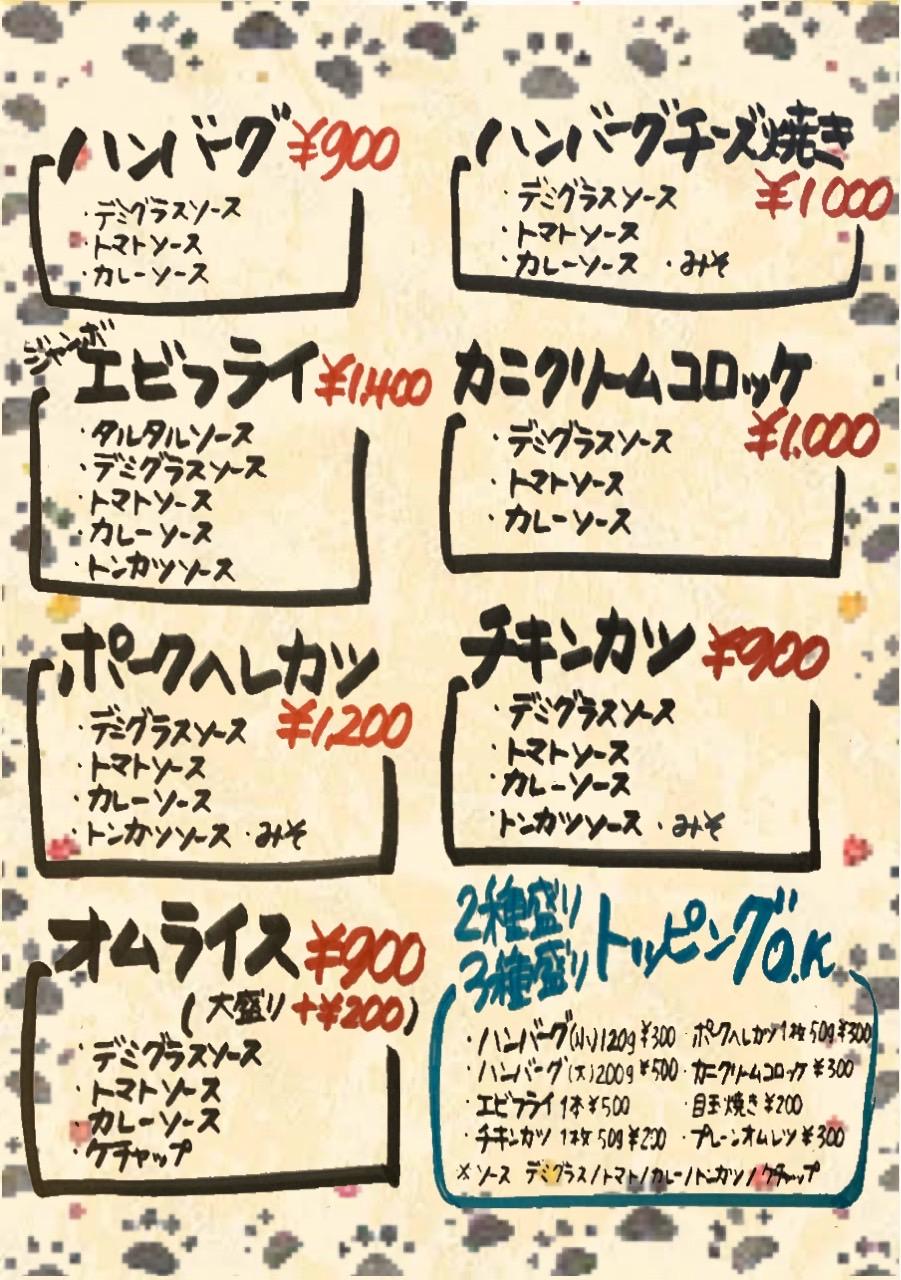 ハンバーグ ¥900
・デミグラスソース
・トマトソース
・カレーソース
ハンバーグチーズ焼き
¥1000
・デミグラスソース
・トマトソース
・カレーソース ・みそ
ジャンボ
エビフライ ¥1,400
・タルタルソース
・デミグラスソース
・トマトソース
・カレーソース
・トンカツソース
カニクリームコロッケ
¥1,000
・デミグラスソース
・トマトソース
・カレーソース
ポークヘレカツ
¥1,200
・デミグラスソース
・トマトソース
・カレーソース
・トンカツソース ・みそ
チキンカツ ¥900
・デミグラスソース
・トマトソース
・カレーソース
・トンカツソース ・みそ
オムライス ¥900
(大盛り +¥200)
・デミグラスソース
・トマトソース
・カレーソース
・ケチャップ
2種盛り
3種盛り トッピングO.K
・ハンバーグ(小)120g ¥300 ・ポークヘレカツ1枚50g ¥300
・ハンバーグ(大)200g ¥500 ・カニクリームコロッケ ¥300
・エビフライ 1本 ¥500 ・目玉焼き ¥200
・チキンカツ 1枚 50g ¥200 ・プレーンオムレツ ¥300
※ソース デミグラス/トマト/カレー/トンカツ/ケチャップ